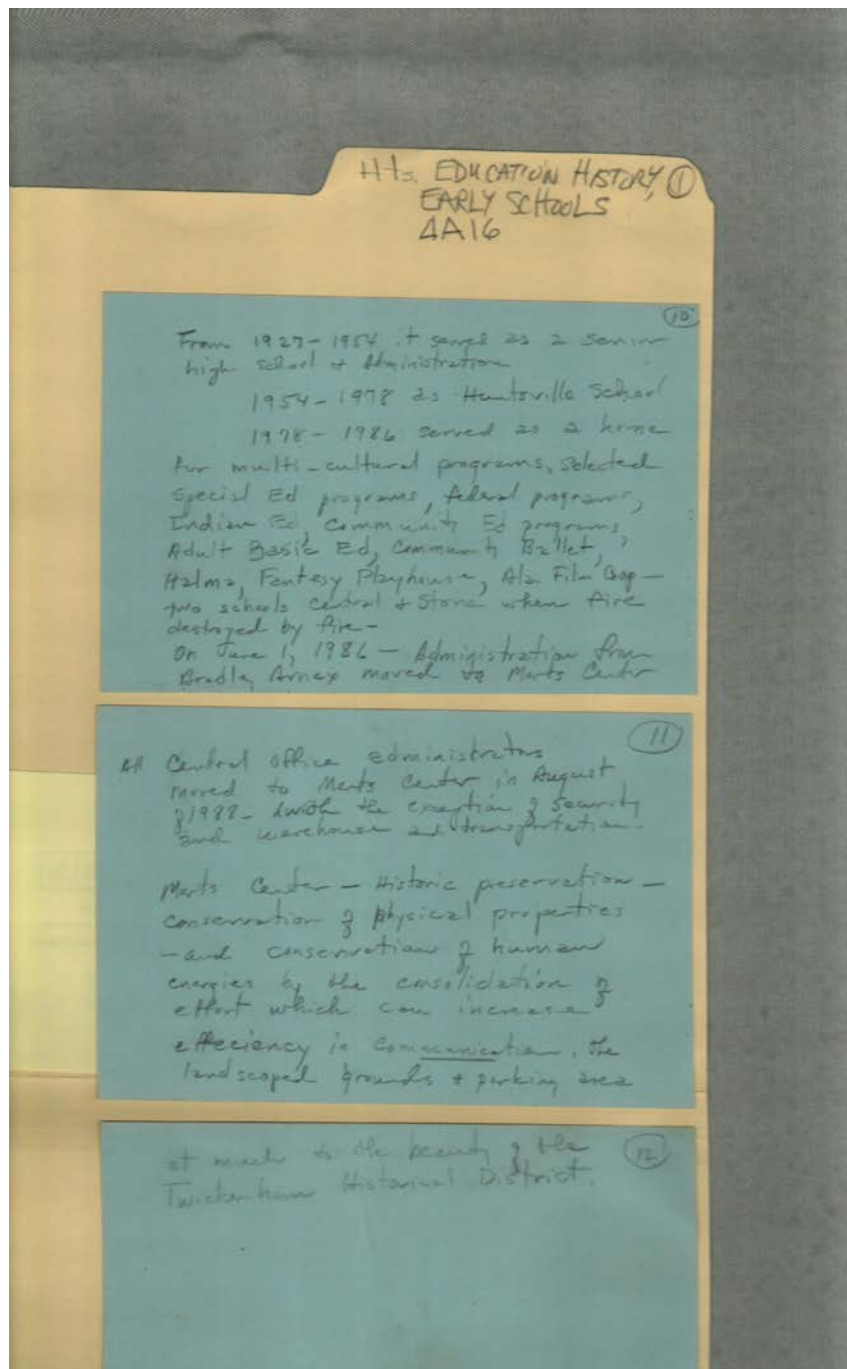 Hts. EDUCATION HISTORY, ①
EARLY SCHOOLS
4A16
10
From 1927-1954 it served as a senior
high school + Administration
1954-1978 as Huntsville School
1978-1986 served as a home
for multi-cultural programs, selected
Special Ed programs, federal programs,
Indian Ed, Community Ed programs,
Adult Basic Ed, Community Ballet,
Halma, Fantesy Playhouse, Ala Film Coop —
two schools Central + Stone when fire
destroyed by fire -
On June 1, 1986 — Administration from
Bradley Annex moved to Merts Center
11
All Central office administrators
moved to Merts Center in August
of 1988 - with the exception of security
and warehouse and transportation.
Merts Center — Historic preservation —
conservation of physical properties
— and conservation of human
energies by the consolidation of
effort which can increase
effeciency in communication. The
landscaped grounds + parking area
12
at much to the beauty of the
Twickenham Historical District.